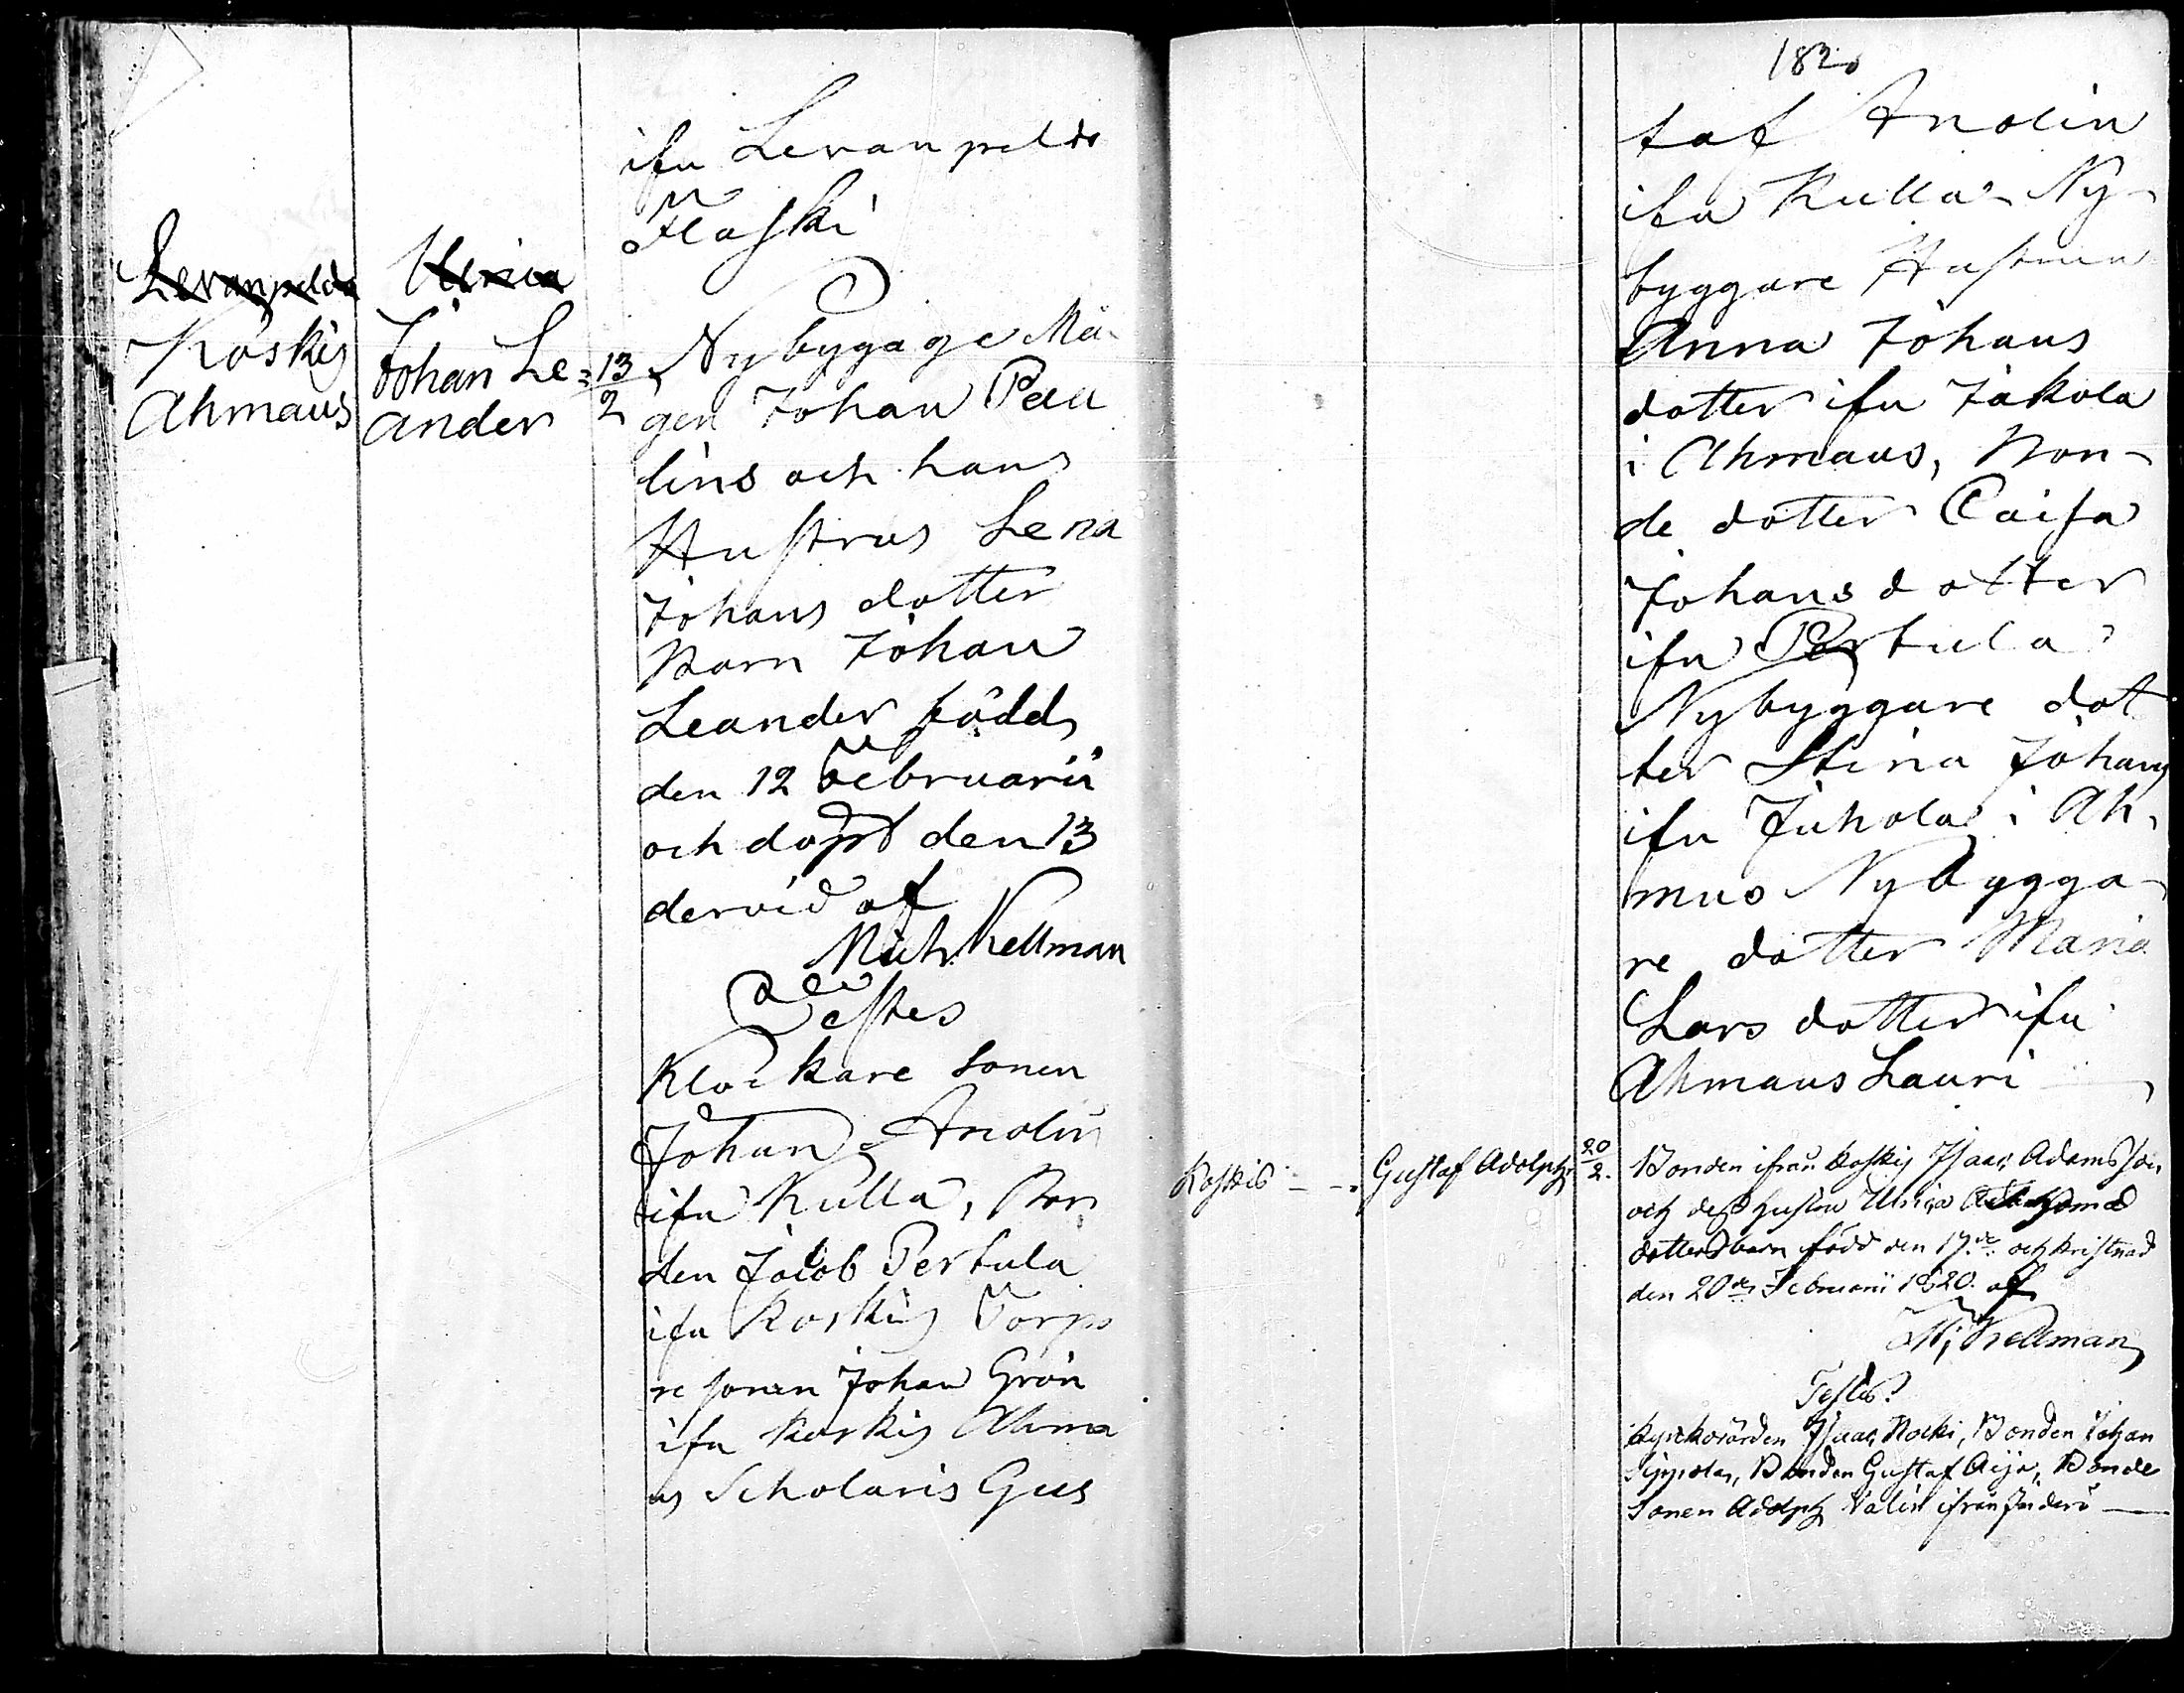 ifn Levanpeldo
Flaski
Levanpeldo Ulrica
Koskis
Ahmaus
Johan Le=
ander
13
2
Nybygage Må
gen Johan Pau
lins och hans
Hustrus Lena
Johans dotter
Barn Johan
Leander född
den 12 Februarii
och döpt den 13
dervid af
Mich Kellman
Testes
Klockare sonen
Johan Anolin
ifn Kulla, Bon
den Jacob Pertula
ifn Koskis Torpa
re sonen Johan Grön
ifn Koskis Ahma
us Scholaris Gus
1820
taf Anolin
ifn Kulla Ny-
byggare Hustrun
Anna Johans
dotter ifn Jakola
i Ahmaus, Bon-
de dotter Caisa
Johans dotter
ifn Pertula
Nybyggare dot
ter Stina Johans
ifn Juhola i Ah,
mus Nybygga-
re dotter Maria
Lars dotter ifn
Ahmaus Lauri
Koskis - - . Gustaf Adolph,
20
2.
Bonden ifrån Koskis Isaac Adamsson
och dess hustru Ulrica
dotters barn född den 17de. och kristnad
den 20de Februarii 1820. af
M; Kellman
Testes.
Kyrkovärden Isaac Nocki, Bonden Johan
Sippola, Bonden Gustaf Aija, Bonde
Sonen Adolph Valin ifrån